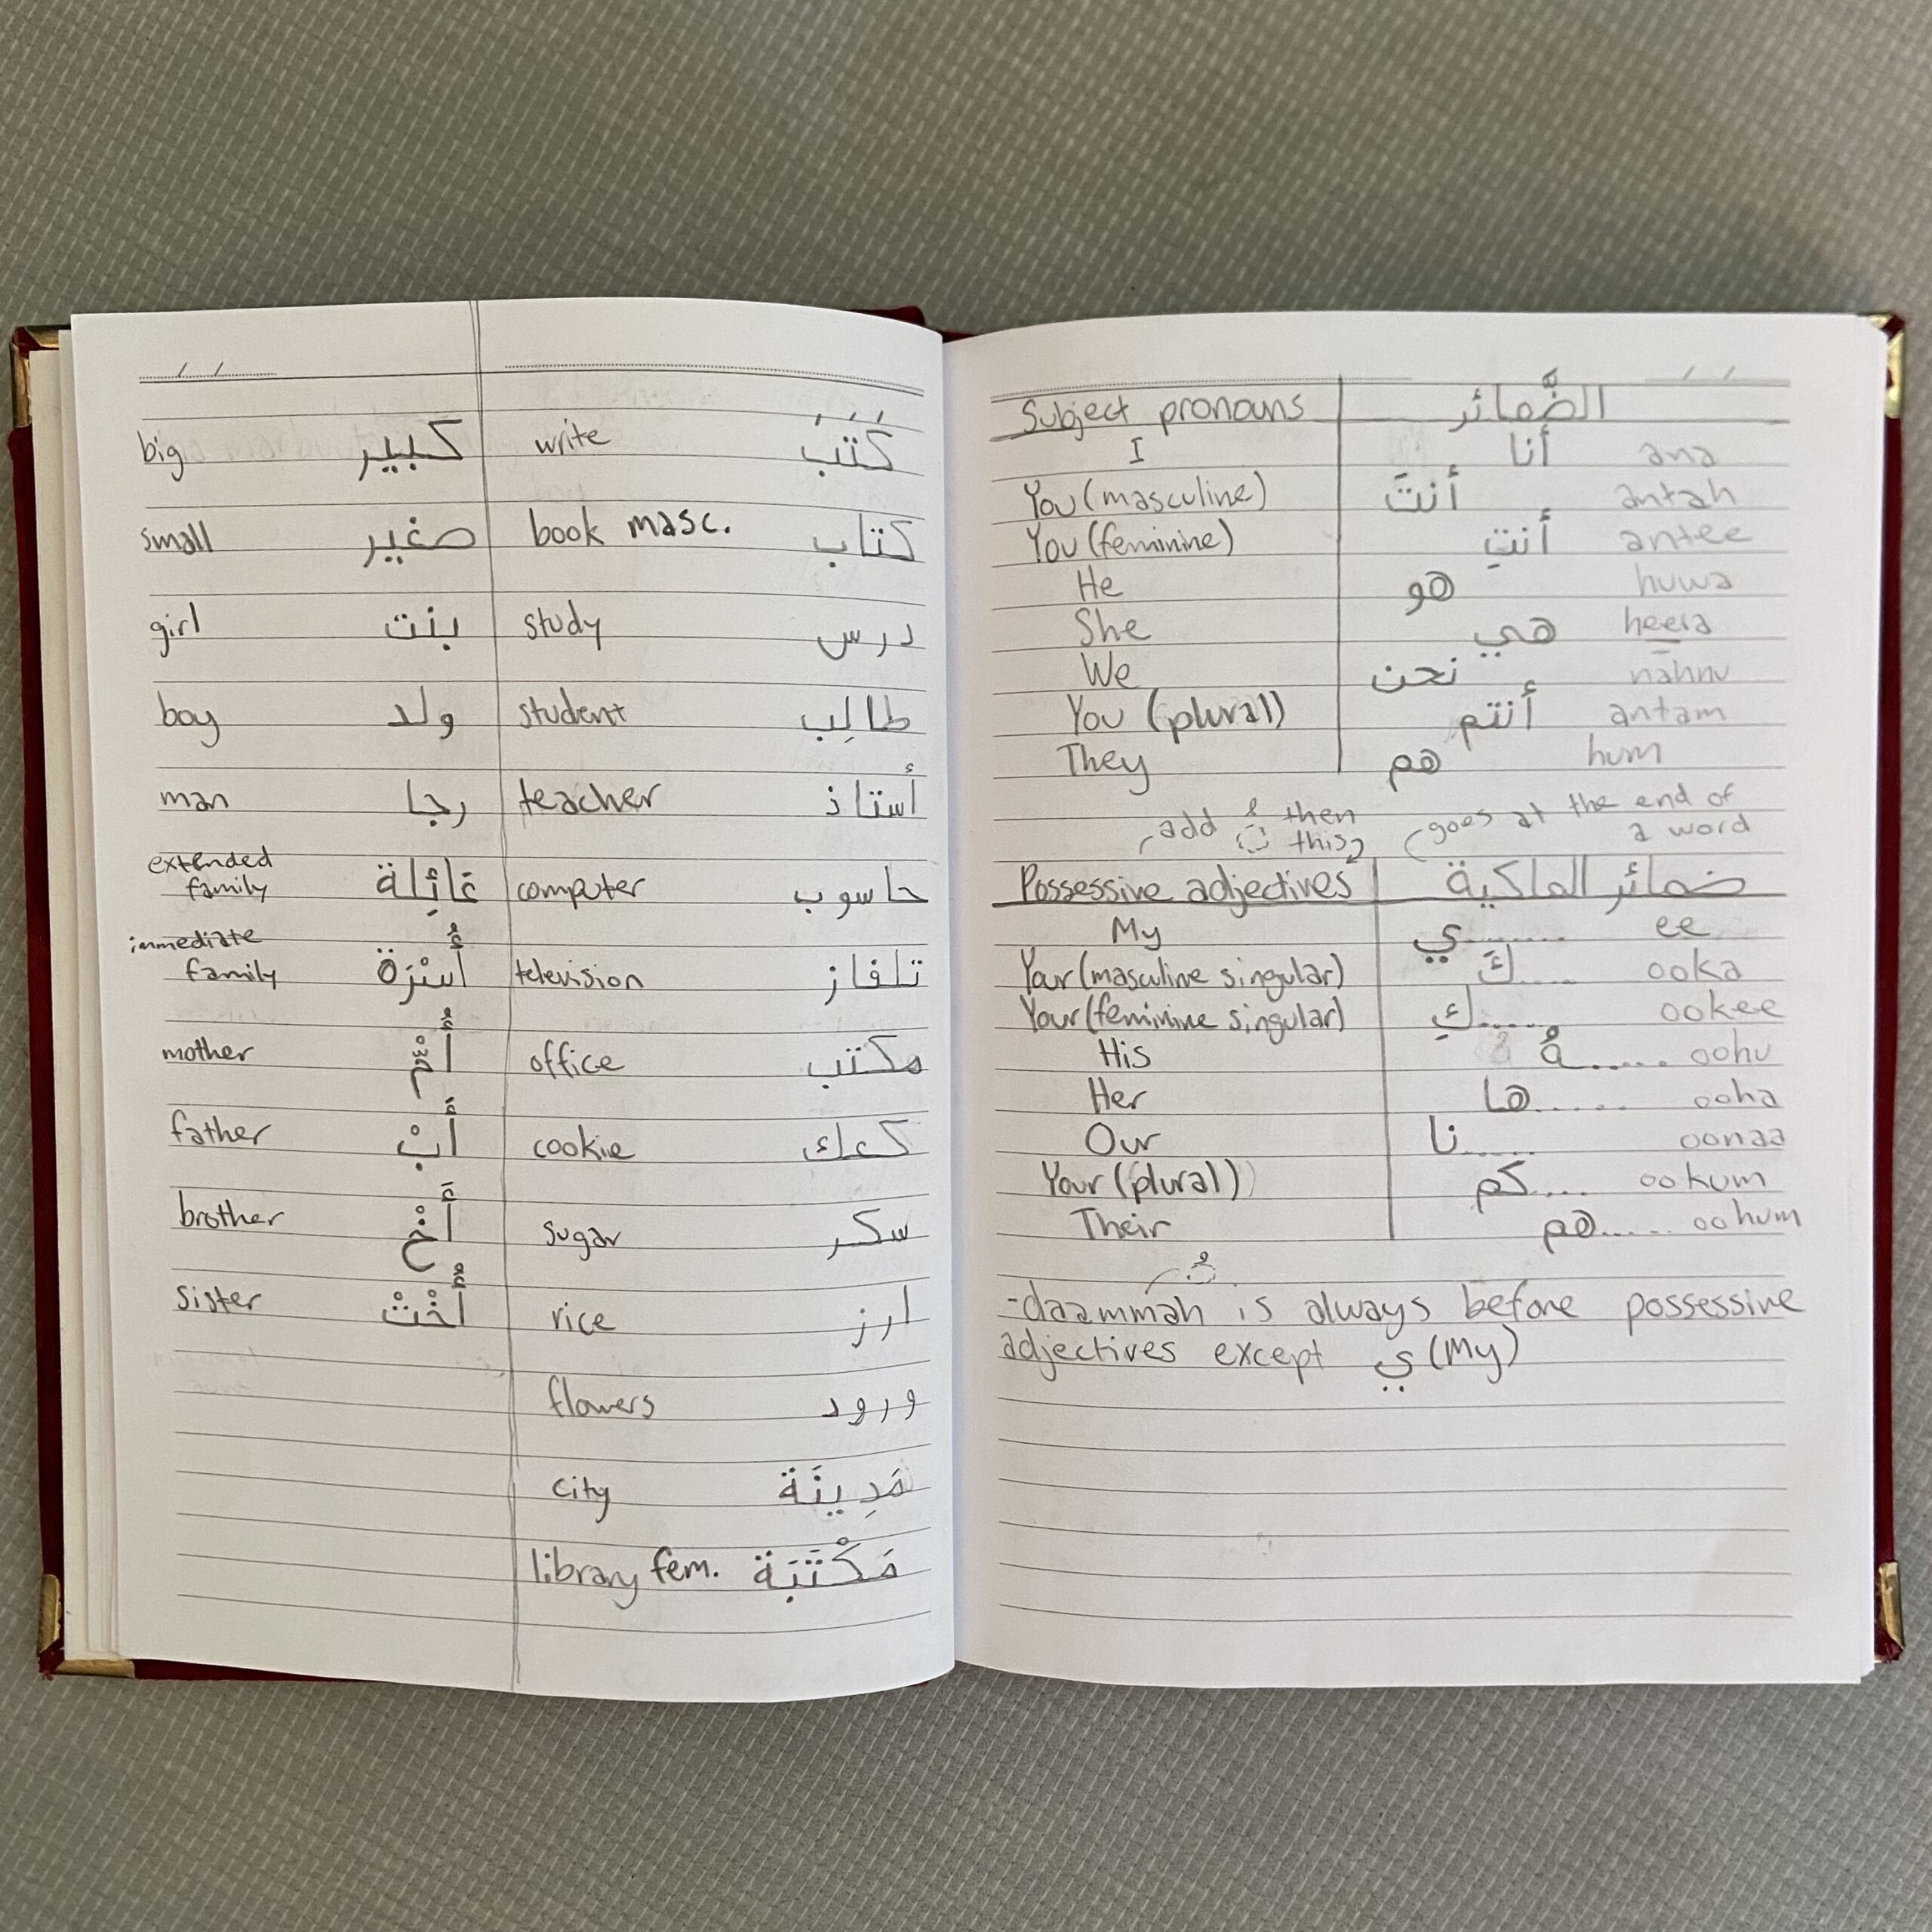 / /
big كبير write كَتَبَ
small صغير book masc. كتاب
girl بنت study درس
boy ولد student طالِب
man رجا teacher أستاذ
extended
family عَائِلة computer حاسوب
immediate
family أُسْرَة television تلفاز
mother أُمّْ office مكتب
father أَبْ cookie كعك
brother أَخْ sugar سكر
sister أُخْتْ rice ارز
flowers ورود
city مَدِينَة
library fem. مَكْتَبَة
/ /
Subject pronouns الضَّمائر
I أنا ana
You (masculine) أنتَ antah
You (feminine) أنتِ antee
He هو huwa
She هي heeia
We نحن nahnu
You (plural) أنتم antam
They هم hum
add ُ then (goes at the end of
this a word
Possessive adjectives ضمائر الملكية
My ي........ ee
Your (masculine singular) كَ..... ooka
Your (feminine singular) كِ...... ookee
His هُ...... oohu
Her ها...... ooha
Our نا...... oonaa
Your (plural) كم.... ookum
Their هم...... oohum
ُ
-daammah is always before possessive
adjectives except ي (My)